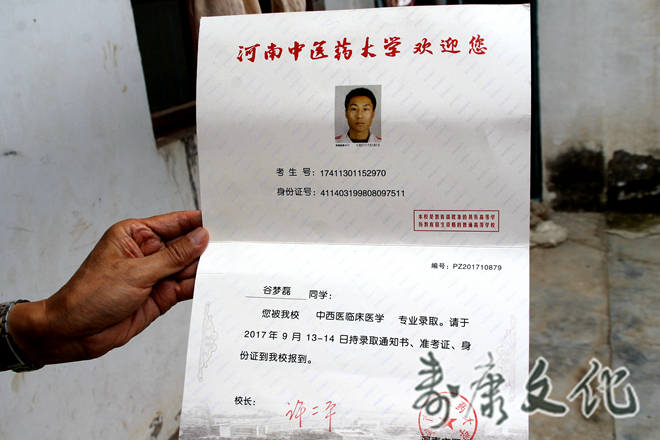 河南中医药大学 欢迎您
考生号：17411301152970
身份证号：411403199808097511
本校是教育部批准的具有高等学
历教育招生资格的普通高等学校
编号：PZ201710879
谷梦磊 同学：
您被我校 中西医临床医学 专业录取。请于
2017年9月13-14日持录取通知书、准考证、身
份证到我校报到。
校长：许二平
寿康文化